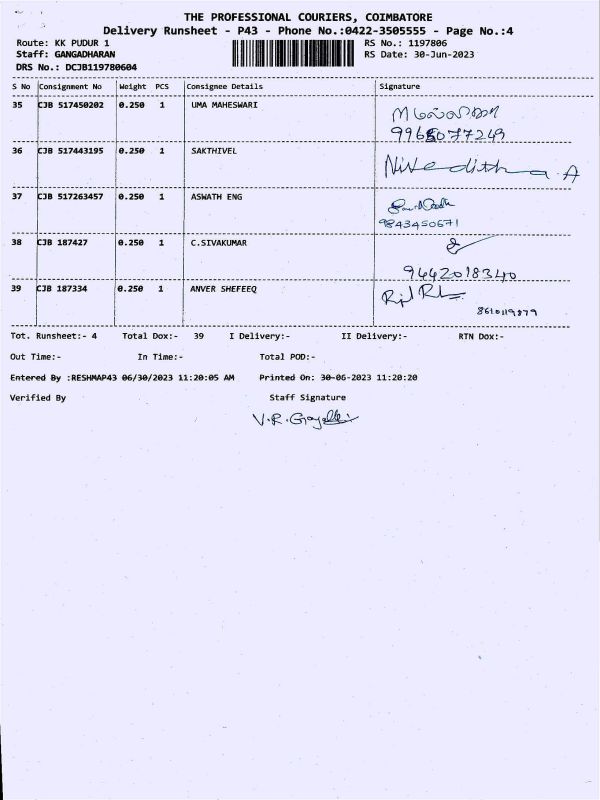 THE PROFESSIONAL COURIERS, COIMBATORE
Delivery Runsheet - P43 - Phone No.:0422-3505555 - Page No.:4
Route: KK PUDUR 1 RS No.: 1197806
Staff: GANGADHARAN RS Date: 30-Jun-2023
DRS No.: DCJB119780604
S No Consignment No Weight PCS Consignee Details Signature
35 CJB 517450202 0.250 1 UMA MAHESWARI
9965077249
36 CJB 517443195 0.250 1 SAKTHIVEL Nivedithaa.A
37 CJB 517263457 0.250 1 ASWATH ENG
9843450671
38 CJB 187427 0.250 1 C.SIVAKUMAR
9442018340
39 CJB 187334 0.250 1 ANVER SHEFEEQ
8610119879
Tot. Runsheet:- 4 Total Dox:- 39 I Delivery:- II Delivery:- RTN Dox:-
Out Time:- In Time:- Total POD:-
Entered By :RESHMAP43 06/30/2023 11:20:05 AM Printed On: 30-06-2023 11:20:20
Verified By Staff Signature